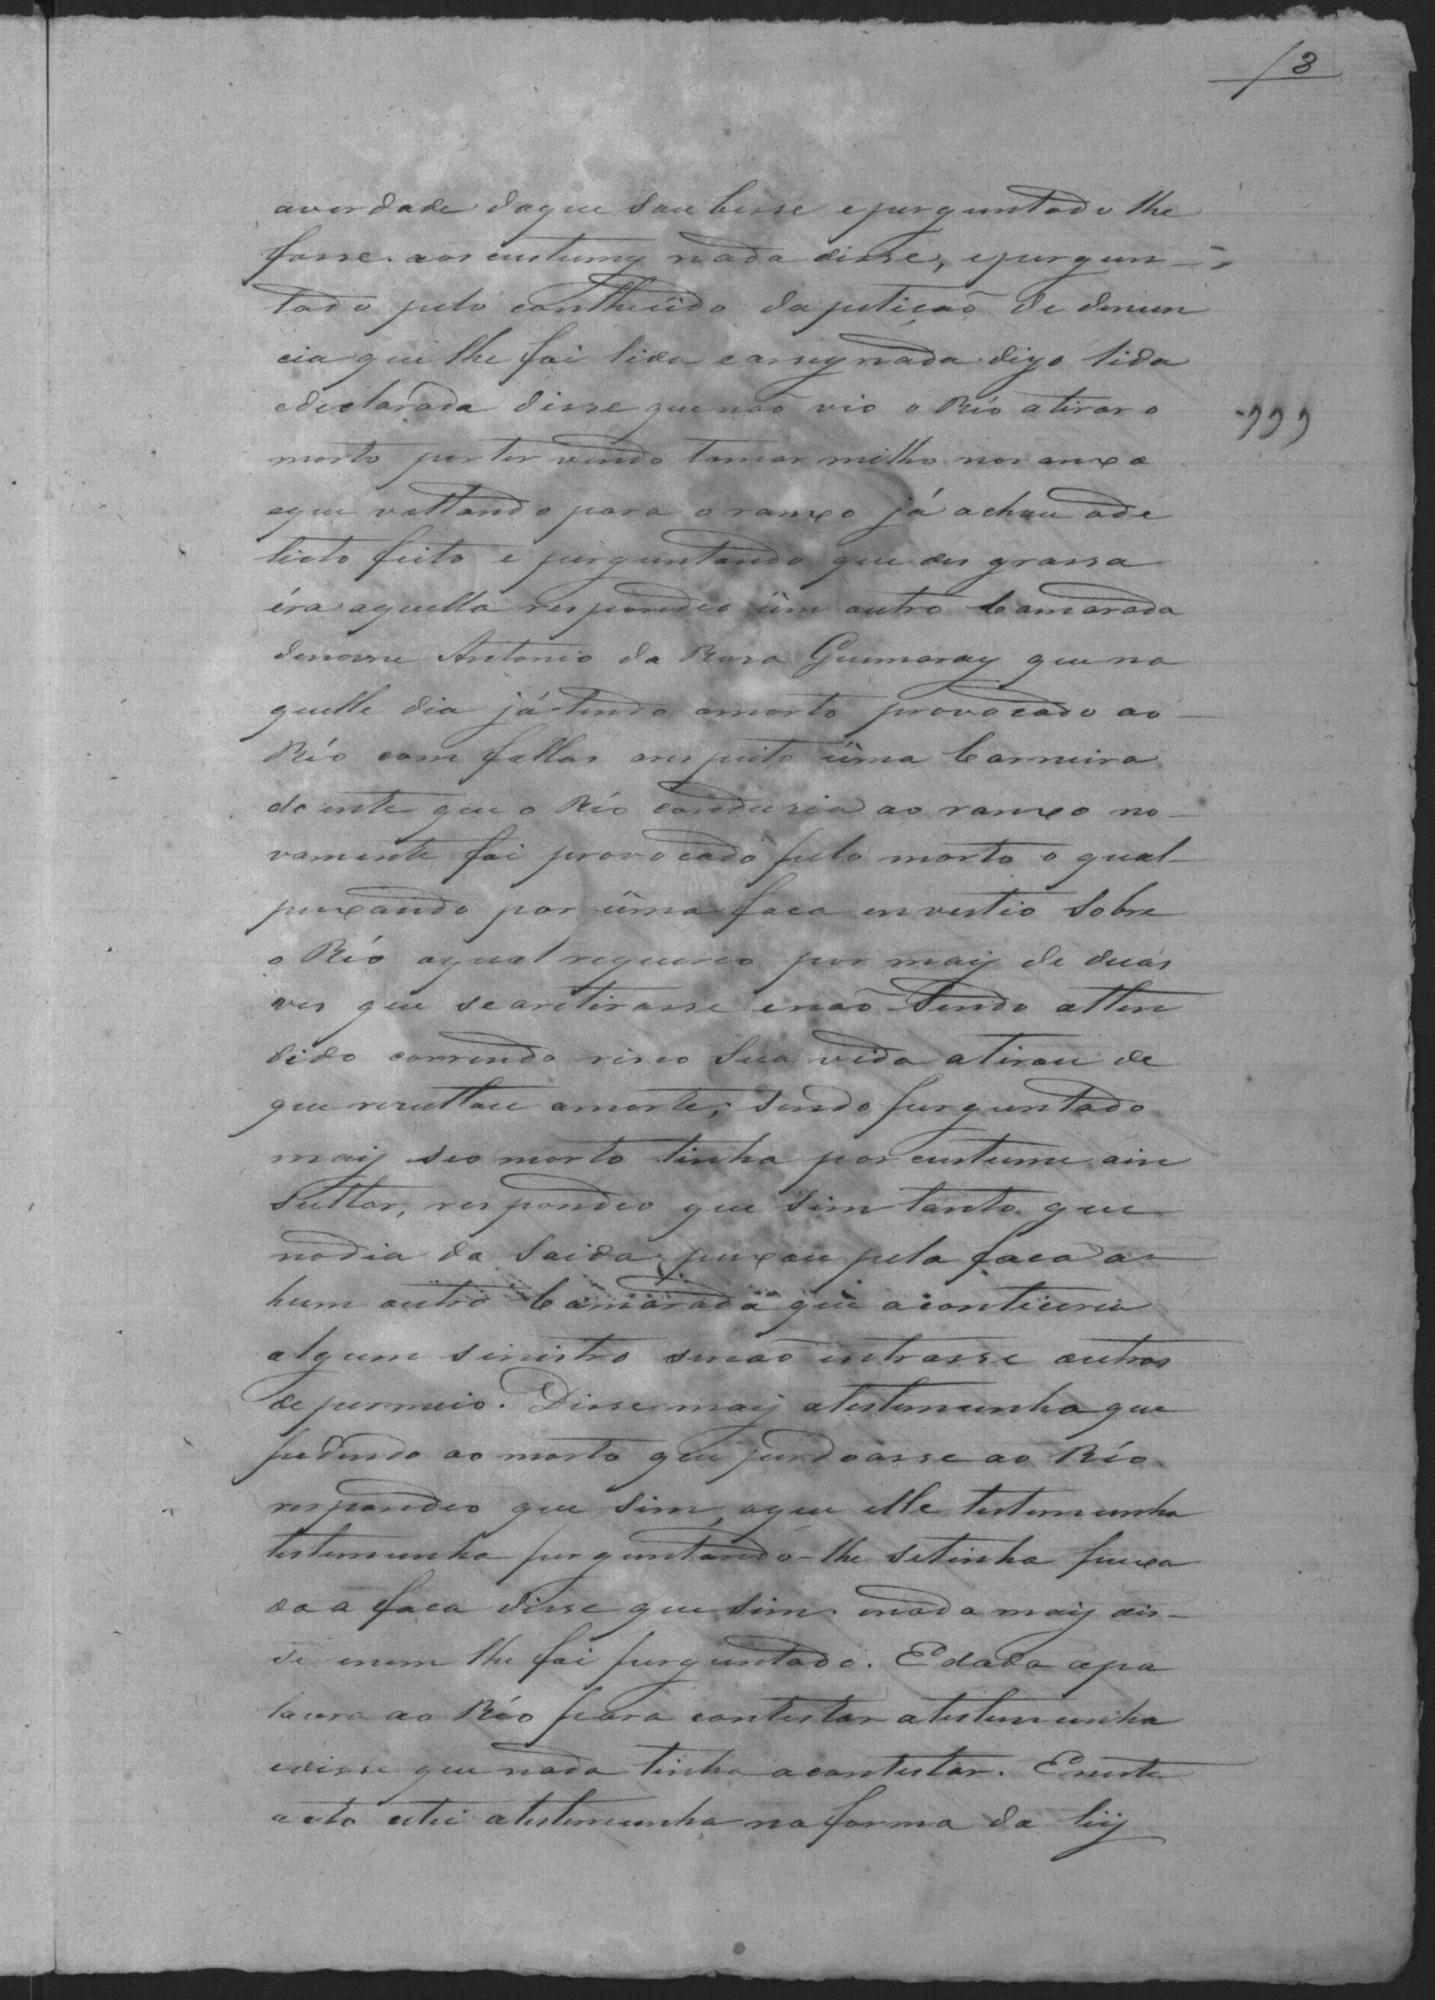 /8
averdade doque soubesse eperguntado lhe
fosse. aos custumes nada disse, epergun-
tado pelo conthúido dapetição de denun
cia que lhe foi lida easseynada digo lida
edeclarada disse quenão vio o Réo atirar o
morto por ter vindo tomar milho noranxo
eque voltando para oranxo já achou ode
licto feito e perguntando que des grassa
éra aquella respondeo üm outro Camarada
denome Antonio da Rosa Guimaray que na
quelle dia já tendo omorto provocado ao
Réo com fallas arespeito üma Carneira
doente que o Réo condusia ao ranxo no-
vamente foi provocado pelo morto o qual
puxando por üma faca investio Sobre
o Réo oqual requereo por maiz de duas
ves que searetirasse enão Sendo atten
dido correndo risco Sua vida atirou de
que resultou amorte; Sendo perguntado
maiz seo morto tinha por custume ain
sultar, respondeo que sim tanto que
nodia da Saida puxou pela faca a-
hum outro Camarada que aconticeria
algum sinistro senão entrasse outros
depermeio. Disse maiz atestemunha que
pedindo ao morto que perdoasse ao Réo
respondeo que Sim, eque elle testemunha
testemunha perguntando-lhe setinha puxa
do a faca disse que Sim. enada maiz dis-
se enem lhe foi perguntado. Edada apa
lavra ao Réo para contestar atestemunha
edisse que nada tinha acontestar. Eneste
acto citei atestemunha na forma da Ley